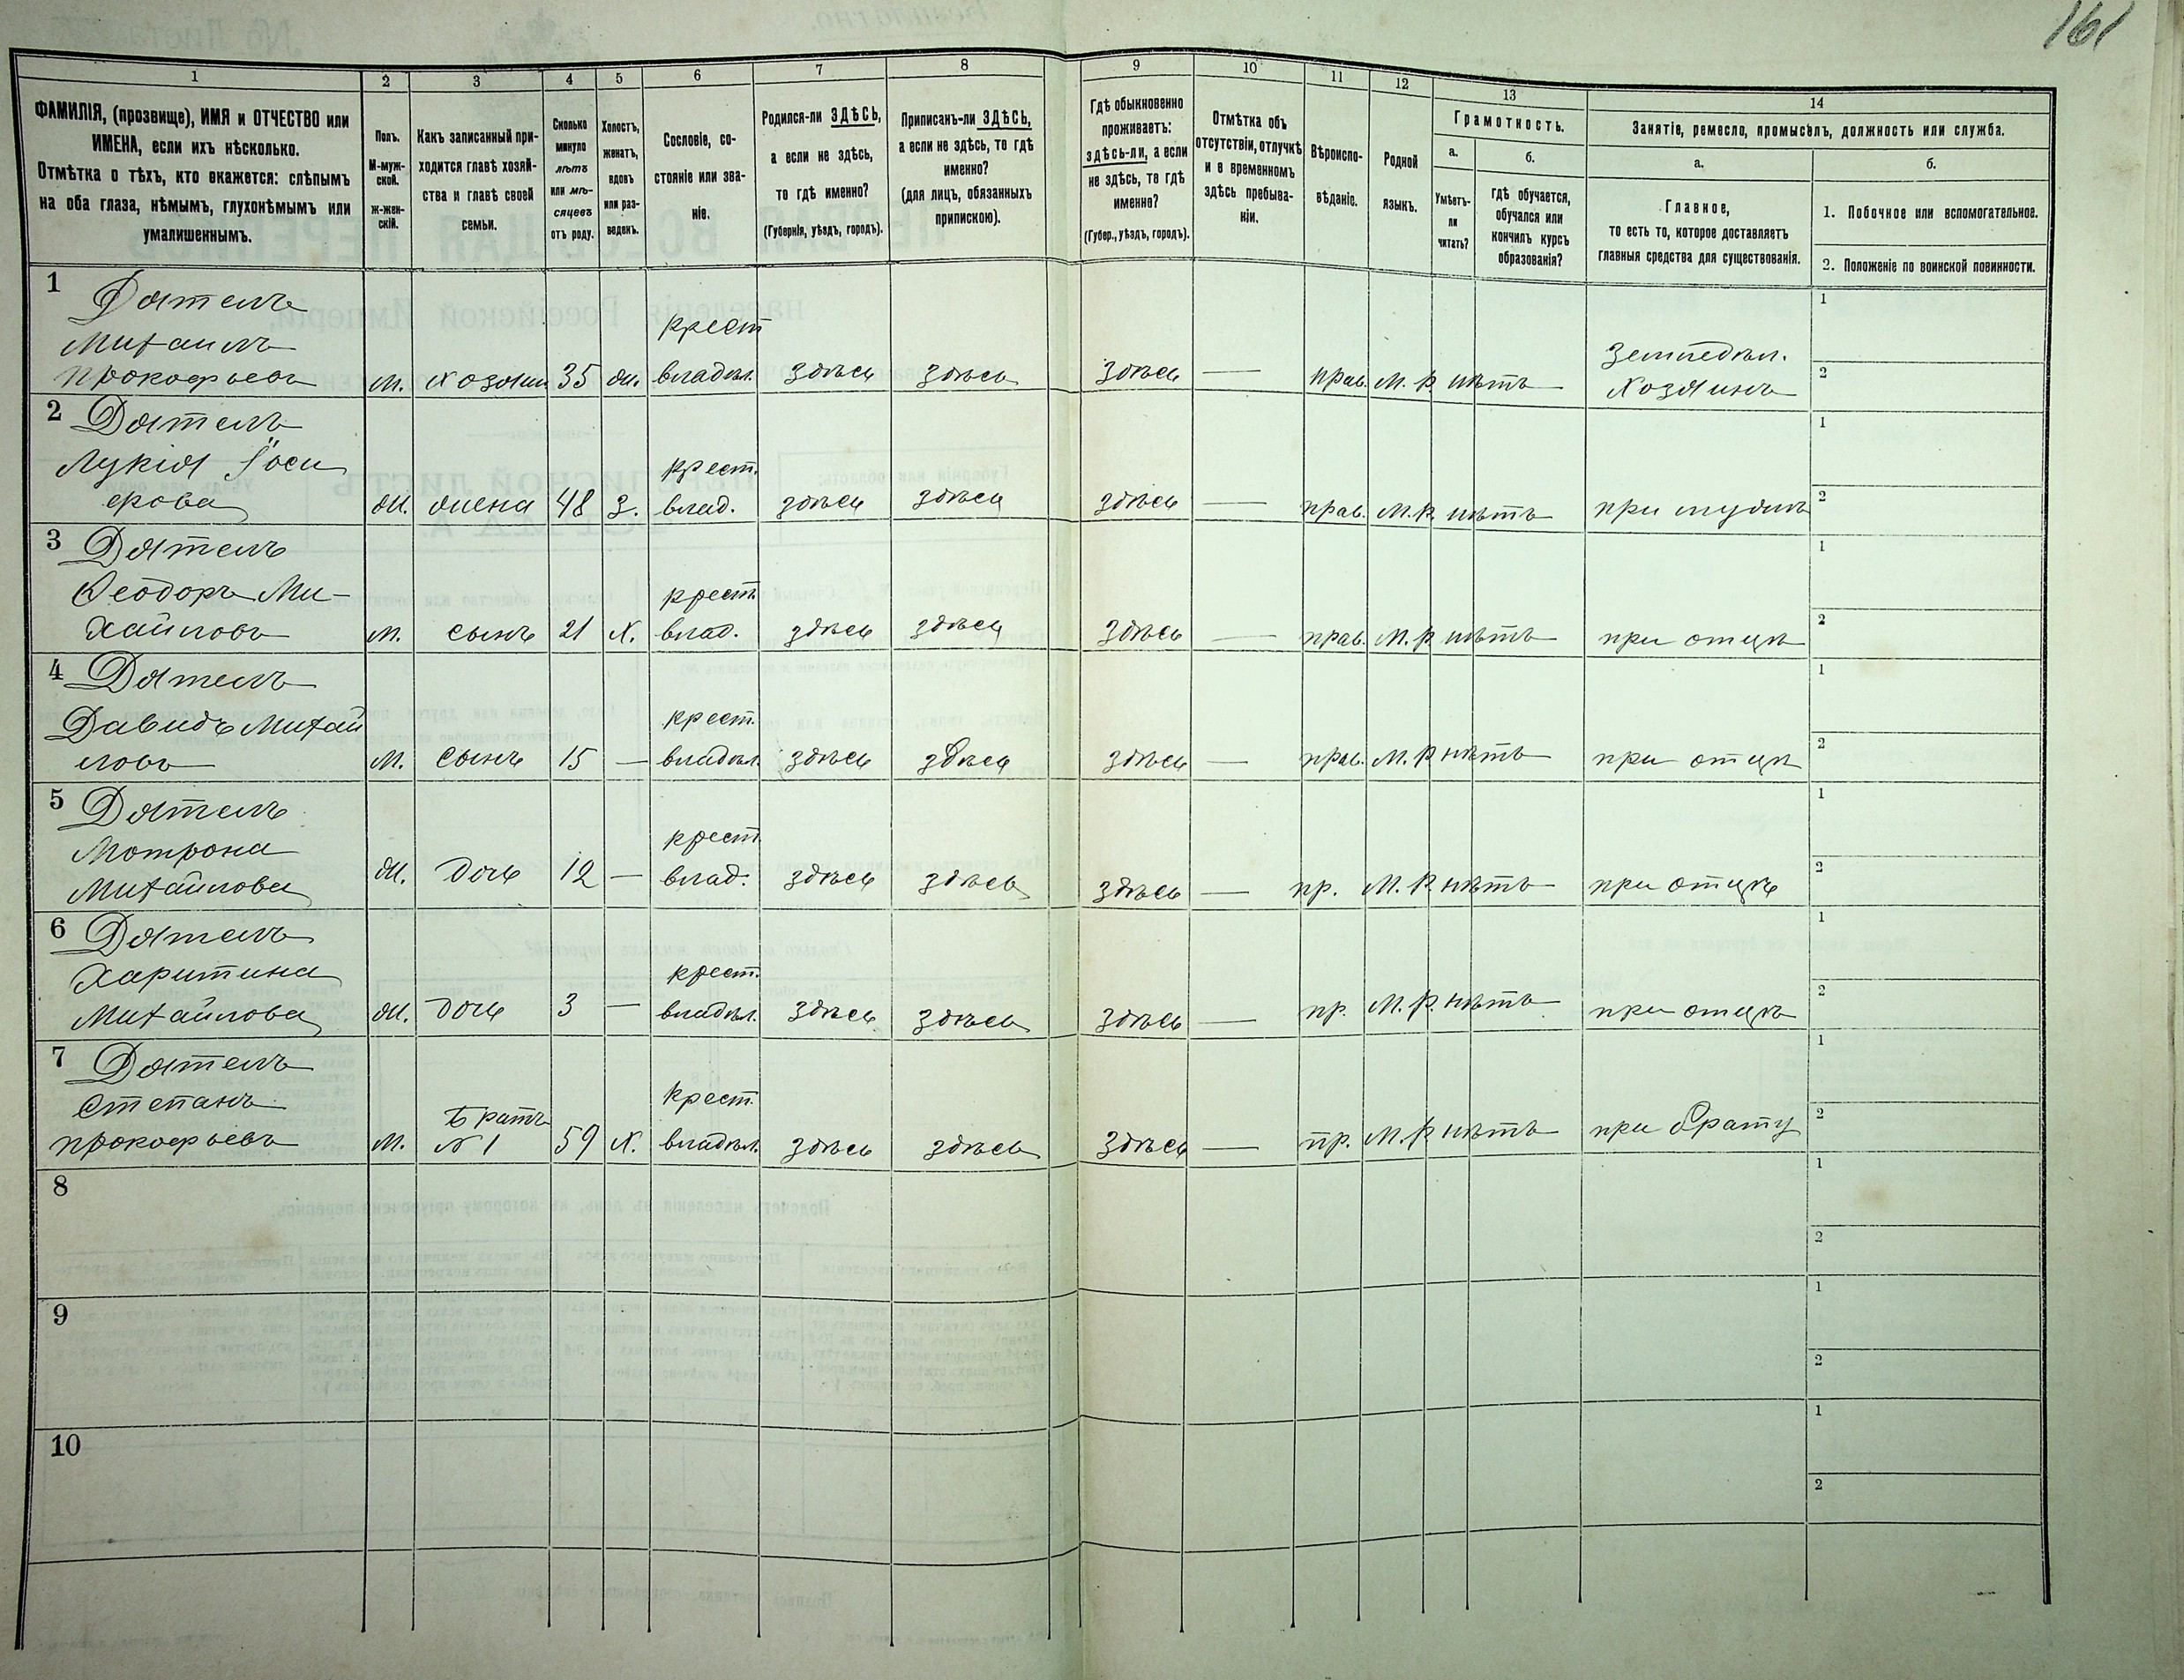 161
1 2 3 4 5 6 7 8 9 10 11 12 13 14
ФАМИЛІЯ, (прозвище), ИМЯ и ОТЧЕСТВО или
ИМЕНА, если ихъ нѣсколько.
Отмѣтка о тѣхъ, кто окажется: слѣпымъ
на оба глаза, нѣмымъ, глухонѣмымъ или
умалишеннымъ.
Полъ.
М-муж-
ской.
Ж-жен-
скій.
Какъ записанный при-
ходится главѣ хозяй-
ства и главѣ своей
семьи.
Сколько
минуло
лѣтъ
или мѣ-
сяцевъ
отъ роду.
Холостъ,
женатъ,
вдовъ
или раз-
веденъ.
Сословіе, со-
стояніе или зва-
ніе.
Родился-ли ЗДѢСЬ,
а если не здѣсь,
то гдѣ именно?
(Губернія, уѣздъ, городъ).
Приписанъ-ли ЗДѢСЬ,
а если не здѣсь, то гдѣ
именно?
(для лицъ, обязанныхъ
припискою).
Гдѣ обыкновенно
проживаетъ:
здѣсь-ли, а если
не здѣсь, то гдѣ
именно?
(Губер., уѣздъ, городъ).
Отмѣтка объ
отсутствіи, отлучкѣ
и в временномъ
здѣсь пребыва-
ніи.
Вѣроиспо-
вѣданіе.
Родной
языкъ.
Грамотность.
а. б.
Умѣетъ-
ли
читать?
гдѣ обучается,
обучался или
кончилъ курсъ
образованія?
Занятіе, ремесло, промыселъ, должность или служба.
а. б.
Главное,
то есть то, которое доставляетъ
главныя средства для существованія.
1. Побочное или вспомогательное.
2. Положеніе по воинской повинности.
1 Дятелъ 1
крест
Михаилъ земледѣл.
Прокофьевъ м. хозяин 35 ж. владѣл. здѣсь здѣсь здѣсь — прав. М. р нѣтъ хозяинъ 2
2 Дятелъ 1
Лукія Іоси крест.
фова ж. жена 48 З. влад. здѣсь здѣсь здѣсь — прав. М. р. нѣтъ при мужѣ 2
3 Дятелъ 1
Ѳеодоръ Ми- крест.
хайловъ м. сынъ 21 х. влад. здѣсь здѣсь здѣсь — прав. М. р нѣтъ при отцѣ 2
4 Дятелъ 1
Давидъ Михай крест.
ловъ м. сынъ 15 — владѣл. здѣсь здѣсь здѣсь — прав. М. р нѣтъ при отцѣ 2
5 Дятелъ 1
Мотрона крест.
Михайлова ж. дочь 12 — влад. здѣсь здѣсь здѣсь — пр. М. р. нѣтъ при отцѣ 2
6 Дятелъ 1
Харитина крест.
Михайлова ж. дочь 3 — владѣл. здѣсь здѣсь здѣсь — пр. М. р. нѣтъ при отцѣ 2
7 Дятелъ 1
Степанъ братъ крест.
Прокофьевъ м. N 1 59 х. владѣл. здѣсь здѣсь здѣсь — пр. М. р нѣтъ при брату 2
8 1
2
9 1
2
10 1
2